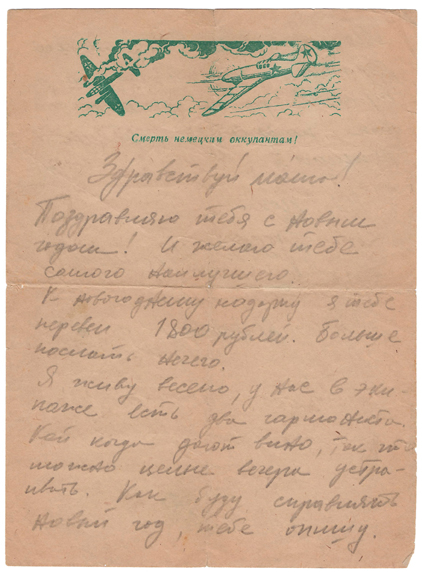 Смерть немецким оккупантам!
Здравствуй мама!
Поздравляю тебя с новым
годом! И желаю тебе
самого наилучшего.
К новогоднему подарку я тебе
перевел 1800 рублей. Больше
послать нечего.
Я живу весело, у нас в эки-
паже есть два гармониста.
Кой когда дают вино, так что
можно целые вечера устра-
ивать. Как буду справлять
Новый год, тебе опишу.